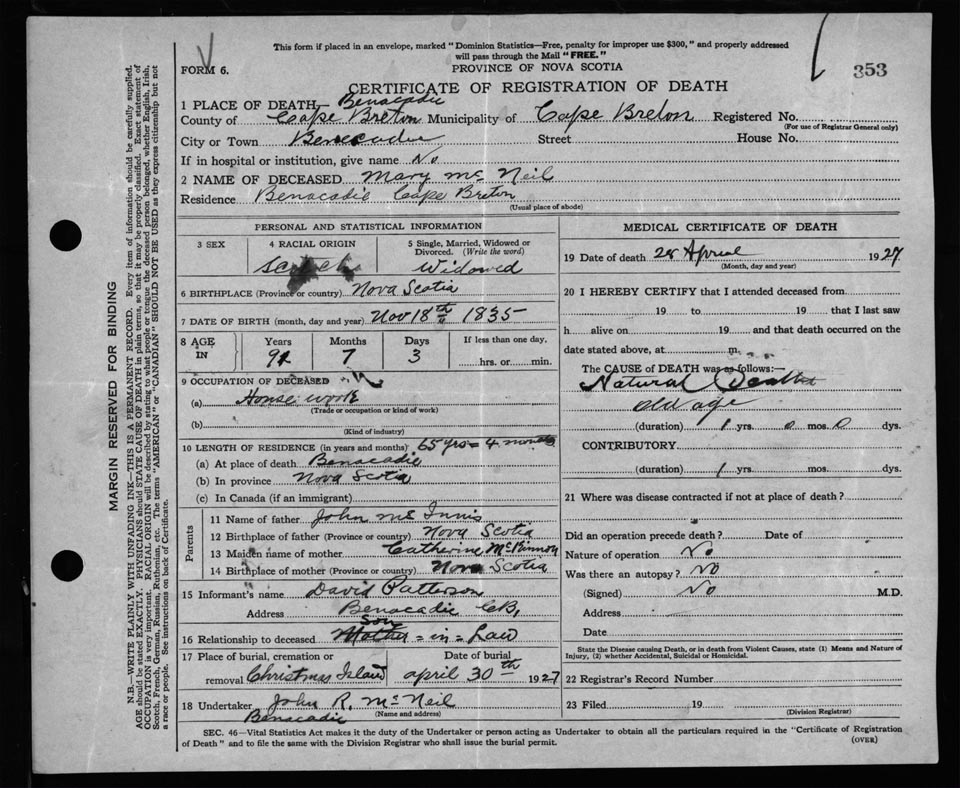 This form if placed in an envelope, marked "Dominion Statistics—Free, penalty for improper use $300," and properly addressed
will pass through the Mail "FREE."
FORM 6.
PROVINCE OF NOVA SCOTIA
353
CERTIFICATE OF REGISTRATION OF DEATH
1 PLACE OF DEATH— Benacadie
County of Cape Breton Municipality of Cape Breton Registered No.
(For use of Registrar General only)
City or Town Benacadie Street House No.
If in hospital or institution, give name No
2 NAME OF DECEASED Mary Mc Neil
Residence Benacadie Cape Breton
(Usual place of abode)
PERSONAL AND STATISTICAL INFORMATION
3 SEX 4 RACIAL ORIGIN 5 Single, Married, Widowed or Divorced. (Write the word)
Scotch Widowed
6 BIRTHPLACE (Province or country) Nova Scotia
7 DATE OF BIRTH (month, day and year) Nov 18th 1835
8 AGE IN Years Months Days If less than one day,
91 7 3 hrs. or min.
9 OCCUPATION OF DECEASED
(a) House work
(Trade or occupation or kind of work)
(b)
(Kind of industry)
10 LENGTH OF RESIDENCE (in years and months) 65 yrs = 4 months
(a) At place of death Benacadie
(b) In province Nova Scotia
(c) In Canada (if an immigrant)
Parents
11 Name of father John Mc Innis
12 Birthplace of father (Province or country) Nova Scotia
13 Maiden name of mother Catherine McKinnon
14 Birthplace of mother (Province or country) Nova Scotia
15 Informant's name David Patterson
Address Benacadie CB,
son
16 Relationship to deceased Mother = in = Law
17 Place of burial, cremation or Date of burial
removal Christmas Island april 30th 1927
18 Undertaker John R. McNeil
Benacadie (Name and address)
MEDICAL CERTIFICATE OF DEATH
19 Date of death 28 Aprial 1927
(Month, day and year)
20 I HEREBY CERTIFY that I attended deceased from
19 to 19 that I last saw
h alive on 19 and that death occurred on the
date stated above, at m.
The CAUSE of DEATH was as follows:—
Natural Death
old age
(duration) 1 yrs. 0 mos. 0 dys.
CONTRIBUTORY
(duration) 1 yrs. mos. dys.
21 Where was disease contracted if not at place of death?
Did an operation precede death? Date of
Nature of operation No
Was there an autopsy? No
(Signed) No M.D.
Address
Date
State the Disease causing Death, or in death from Violent Causes, state (1) Means and Nature of
Injury, (2) whether Accidental, Suicidal or Homicidal.
22 Registrar's Record Number
23 Filed 19
(Division Registrar)
SEC. 46—Vital Statistics Act makes it the duty of the Undertaker or person acting as Undertaker to obtain all the particulars required in the "Certificate of Registration
of Death" and to file the same with the Division Registrar who shall issue the burial permit.
(OVER)
MARGIN RESERVED FOR BINDING
N.B.—WRITE PLAINLY WITH UNFADING INK—THIS IS A PERMANENT RECORD. Every item of information should be carefully supplied.
AGE should be stated EXACTLY. PHYSICIANS should STATE CAUSE OF DEATH in plain terms, so that it may be properly classified. Exact statement of
OCCUPATION is very important. RACIAL ORIGIN will be described by stating to what people or tongue the deceased person belonged, whether English, Irish,
Scotch, French, German, Russian, Ruthenian, etc. The terms "AMERICAN" or "CANADIAN" SHOULD NOT BE USED as they express citizenship but not
a race or people. See instructions on back of Certificate.